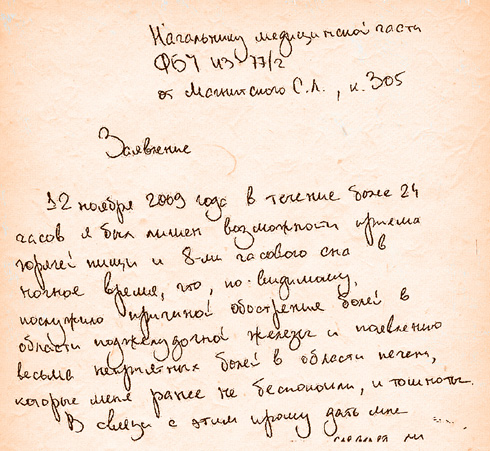 Начальнику медицинской части
ФБУ ИЗ 77/2
от Магнитского С.Л., к. 305
Заявление
12 ноября 2009 года в течение более 24
часов я был лишен возможности приема
горячей пищи и 8-ми часового сна в
ночное время, что, по-видимому,
послужило причиной обострения болей в
области поджелудочной железы и появлению
весьма неприятных болей в области печени,
которые меня ранее не беспокоили, и тошноты.
В связи с этим прошу дать мне